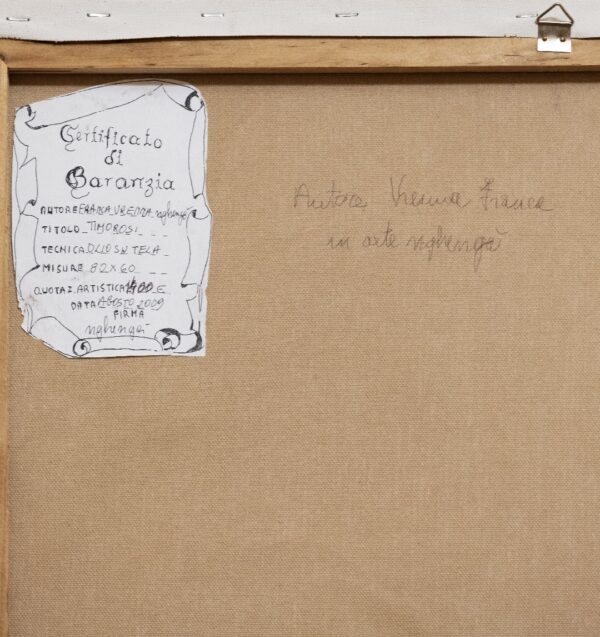 Certificato
di
Garanzia
AUTORE FRANCA VRENNA nghengà
TITOLO_TIMOROSI
TECNICA OLIO SU TELA
MISURE 82X60
QUOTAZ. ARTISTICA € 
DATA AGOSTO 2009
FIRMA
nghengà
Autore Vrenna Franca
in arte nghengà